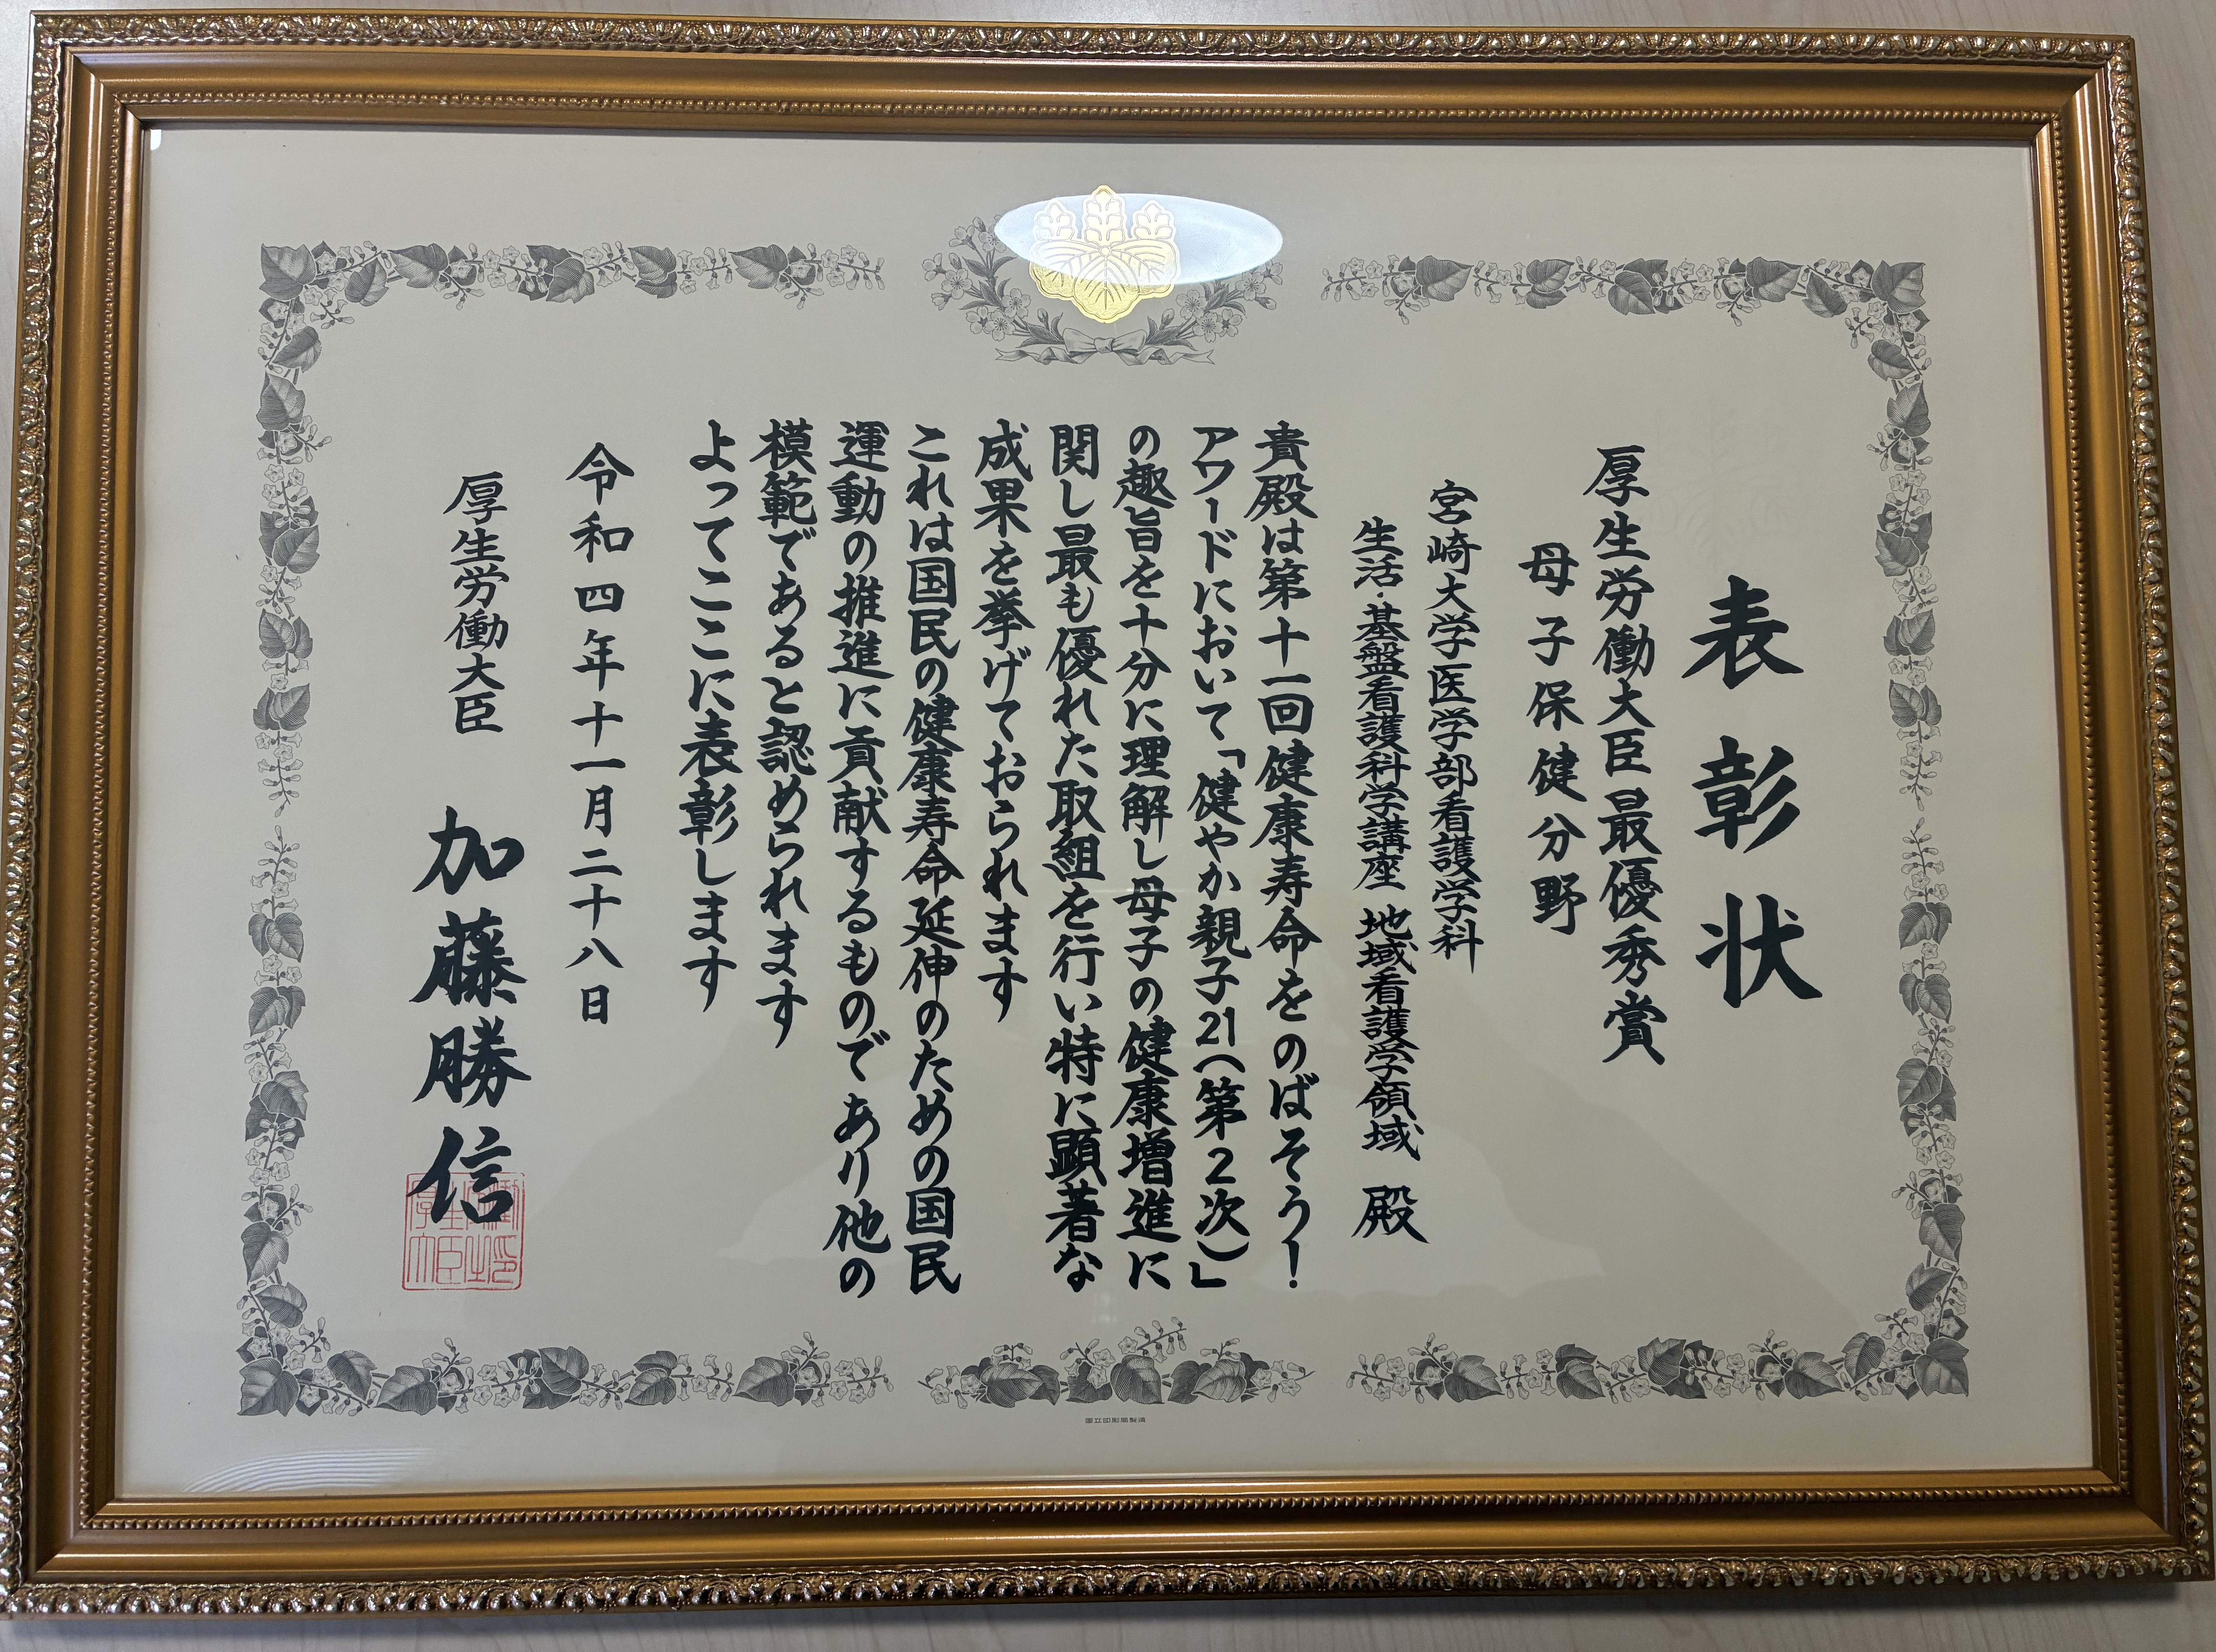 表彰状
厚生労働大臣最優秀賞
母子保健分野
宮崎大学医学部看護学科
生活・基盤看護科学講座 地域看護学領域 殿
貴殿は第十一回健康寿命をのばそう！
アワードにおいて「健やか親子21（第２次）」
の趣旨を十分に理解し母子の健康増進に
関し最も優れた取組を行い特に顕著な
成果を挙げておられます
これは国民の健康寿命延伸のための国民
運動の推進に貢献するものであり他の
模範であると認められます
よってここに表彰します
令和四年十一月二十八日
厚生労働大臣 加藤勝信
国立印刷局製造